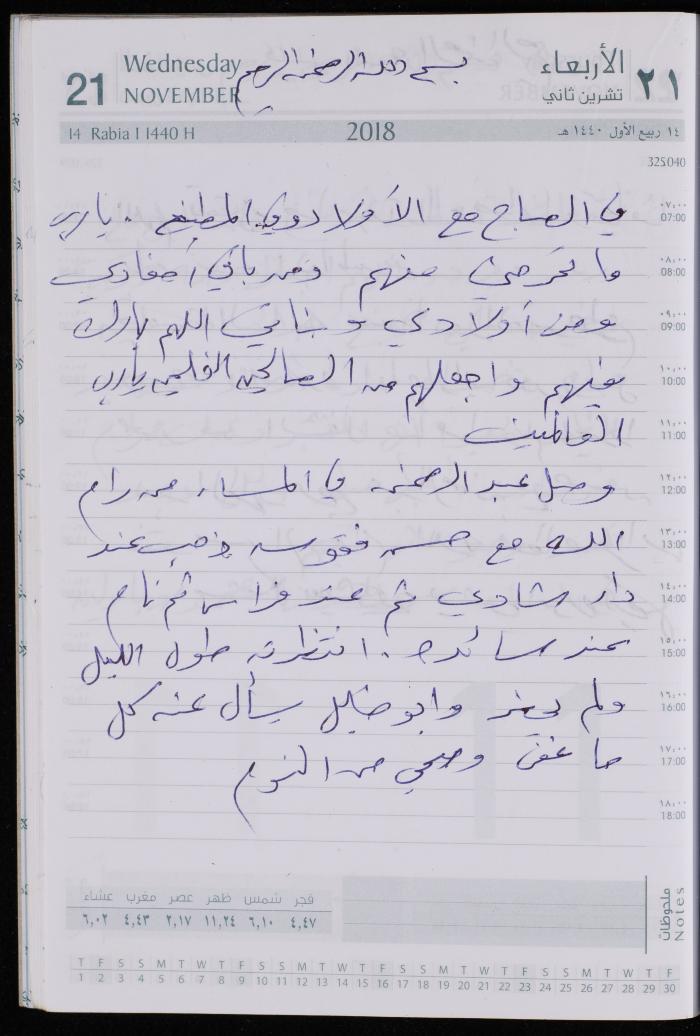 Wednesday
21 NOVEMBER
بسم الله الرحمن الرحيم
الأربعاء
٢١ تشرين ثاني
14 Rabia I 1440 H 2018 ١٤ ربيع الأول ١٤٤٠ هـ
325.040
في الصباح مع الأولاد وفي المطبخ . يارب
ما تحرمني منهم ومن باقي أحفادي
ومن أولادي وبناتي اللهم بارك
فيهم واجعلهم من الصالحين يارب
العالمين
وصل عبد الرحمن في المساء من رام
الله مع حسن فقوسه ذهب عند
دار شادي ثم عند فراس ثم نام
عند سائده . انتظرته طول الليل
ولم يحضر وابو خليل يسأل عنه كل
ما غفى وصحي من النوم
٠٧:٠٠
07:00
٠٨:٠٠
08:00
٠٩:٠٠
09:00
١٠:٠٠
10:00
١١:٠٠
11:00
١٢:٠٠
12:00
١٣:٠٠
13:00
١٤:٠٠
14:00
١٥:٠٠
15:00
١٦:٠٠
16:00
١٧:٠٠
17:00
١٨:٠٠
18:00
فجر شمس ظهر عصر مغرب عشاء
٤,٤٧ ٦,١٠ ١١,٢٤ ٢,١٧ ٤,٤٣ ٦,٠٢
ملحوظات
Notes
T F S S M T W T F S S M T W T F S S M T W T F S S M T W T F
1 2 3 4 5 6 7 8 9 10 11 12 13 14 15 16 17 18 19 20 21 22 23 24 25 26 27 28 29 30